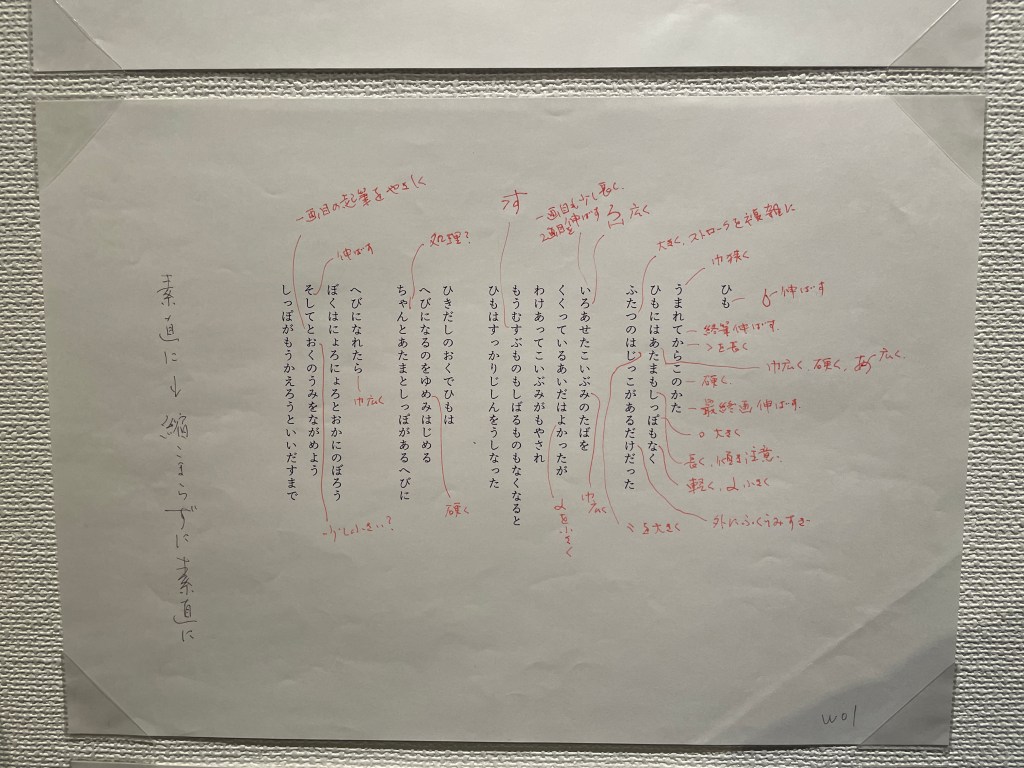 ひも
うまれてからこのかた
ひもにはあたまもしっぽもなく
ふたつのはじっこがあるだけだった
いろあせたこいぶみのたばを
くくっているあいだはよかったが
わけあってこいぶみがもやされ
もうむすぶものもしばるものもなくなると
ひもはすっかりじしんをうしなった
ひきだしのおくでひもは
へびになるのをゆめみはじめる
ちゃんとあたまとしっぽがあるへびに
へびになれたら
ぼくはにょろにょろとおかにのぼろう
そしてとおくのうみをながめよう
しっぽがもうかえろうといいだすまで
伸ばす
巾狭く
大きく、ストロークを複雑に
広く
一画目も少し長く、
2画目を伸ばす
す
処理?
伸ばす
一画目の起筆をやさしく
終筆伸ばす
を長く
巾広く、硬く、広く、
硬く、
最終画伸ばす
大きく
長く、傾き注意、
軽く、小さく
外にふくらみすぎ
を大きく
巾広く
を小さく
硬く
巾広く
少し小さい?
素直に↓縮こまらずに素直に
W01